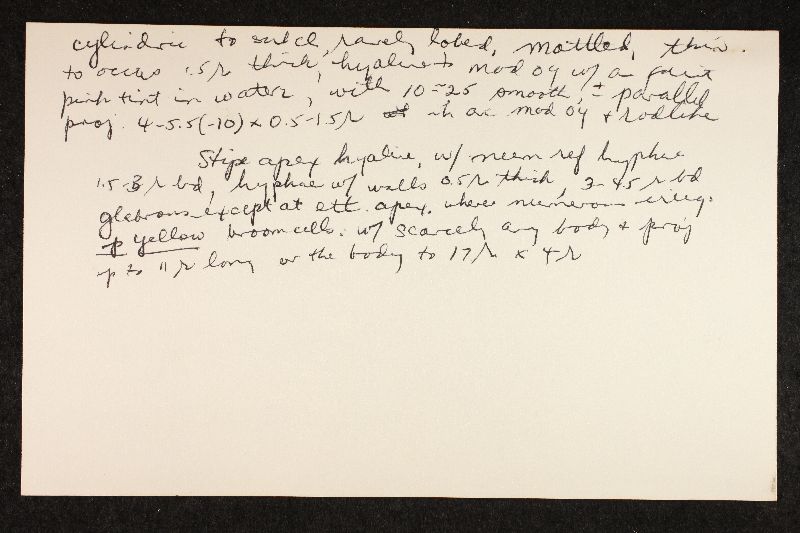 cylindric to subcl, rarely lobed, mottled, thin.
to occas .5μ thick, hyaline to mod oy w/ a faint
pink tint in water, with 10-25 smooth, ± parallel
proj. 4-5.5(-10) x 0.5-1.5μ are mod oy + rodlike
Stipe apex hyaline, w/ numerous ref hyphae
1.5-3μ bd, hyphae w/ walls 0.5μ thick, 3-4.5μ bd
glabrous except at ext. apex, where numerous irreg.
p yellow broom cells. w/ scarcely any body + proj
up to 11μ long or the body to 17μ x 4μ